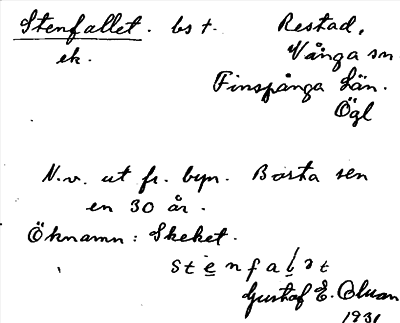 Stenfallet. bs t. Restad,
ek. Vånga sn.
Finspånga Län.
Ögl
N.v. ut fr. byn. Borta sen
en 30 år.
Öknamn: Skeket.
Gustaf E.
1931